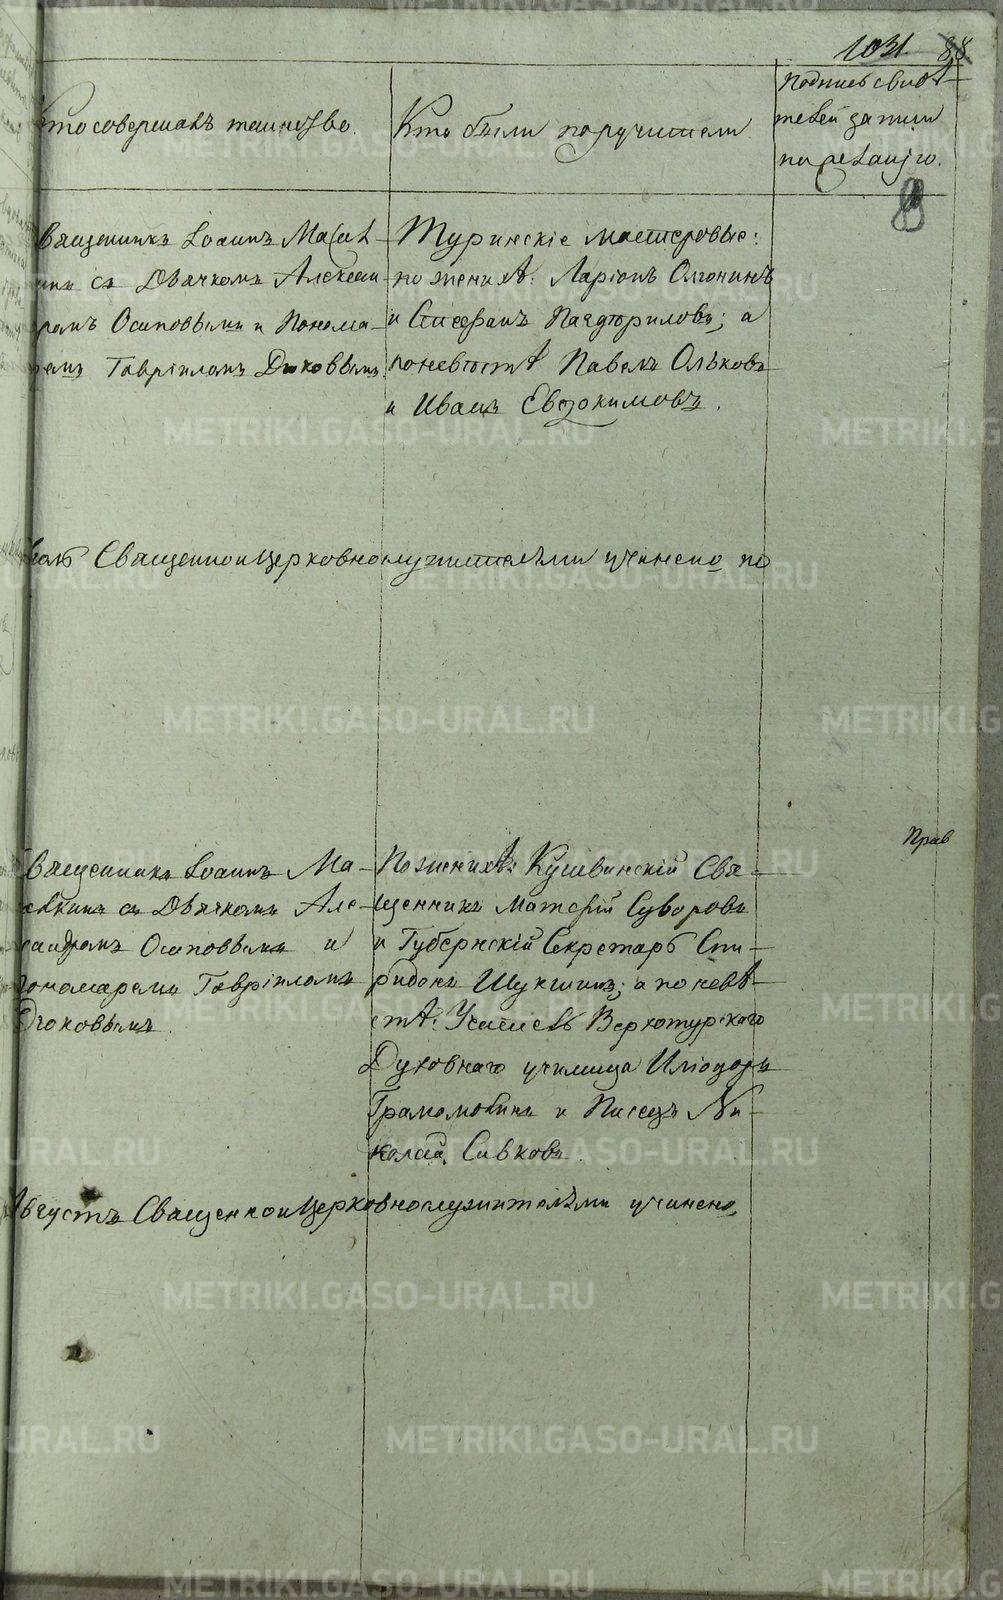 1031. 88
Кто совершалъ таинство.
Кто были поручители
Подпись свидѣ-
телей записи
по желанiю.
Священникъ Iоаннъ
съ Дьячкомъ Александ-
ромъ Осиповымъ и Понома-
ремъ Гаврiиломъ Дюковымъ
Туринскiе мастеровые:
по женихѣ: Ларiонъ
и Стефанъ; а
по невѣстѣ Павелъ Ольковъ
и Иванъ Евдокимовъ.
Священноицерковнослужителями учинено по
Священникъ Iоаннъ Ма-
съ Дьячкомъ Алек-
сандромъ Осиповымъ и
Пономаремъ Гаврiиломъ
Дюковымъ.
По женихѣ: Кушвинскiй Свя-
щенникъ Матѳей Суворовъ
и Губернскiй Секретарь Спи-
ридонъ Шукшинъ; а по невѣ-
стѣ: Учитель Верхотурскаго
Духовнаго училища Илiодоръ
и Писецъ Ни-
колай Сивковъ
Прав
Августъ Священноицерковнослужителями учинено,
METRIKI.GASO-URAL.RU